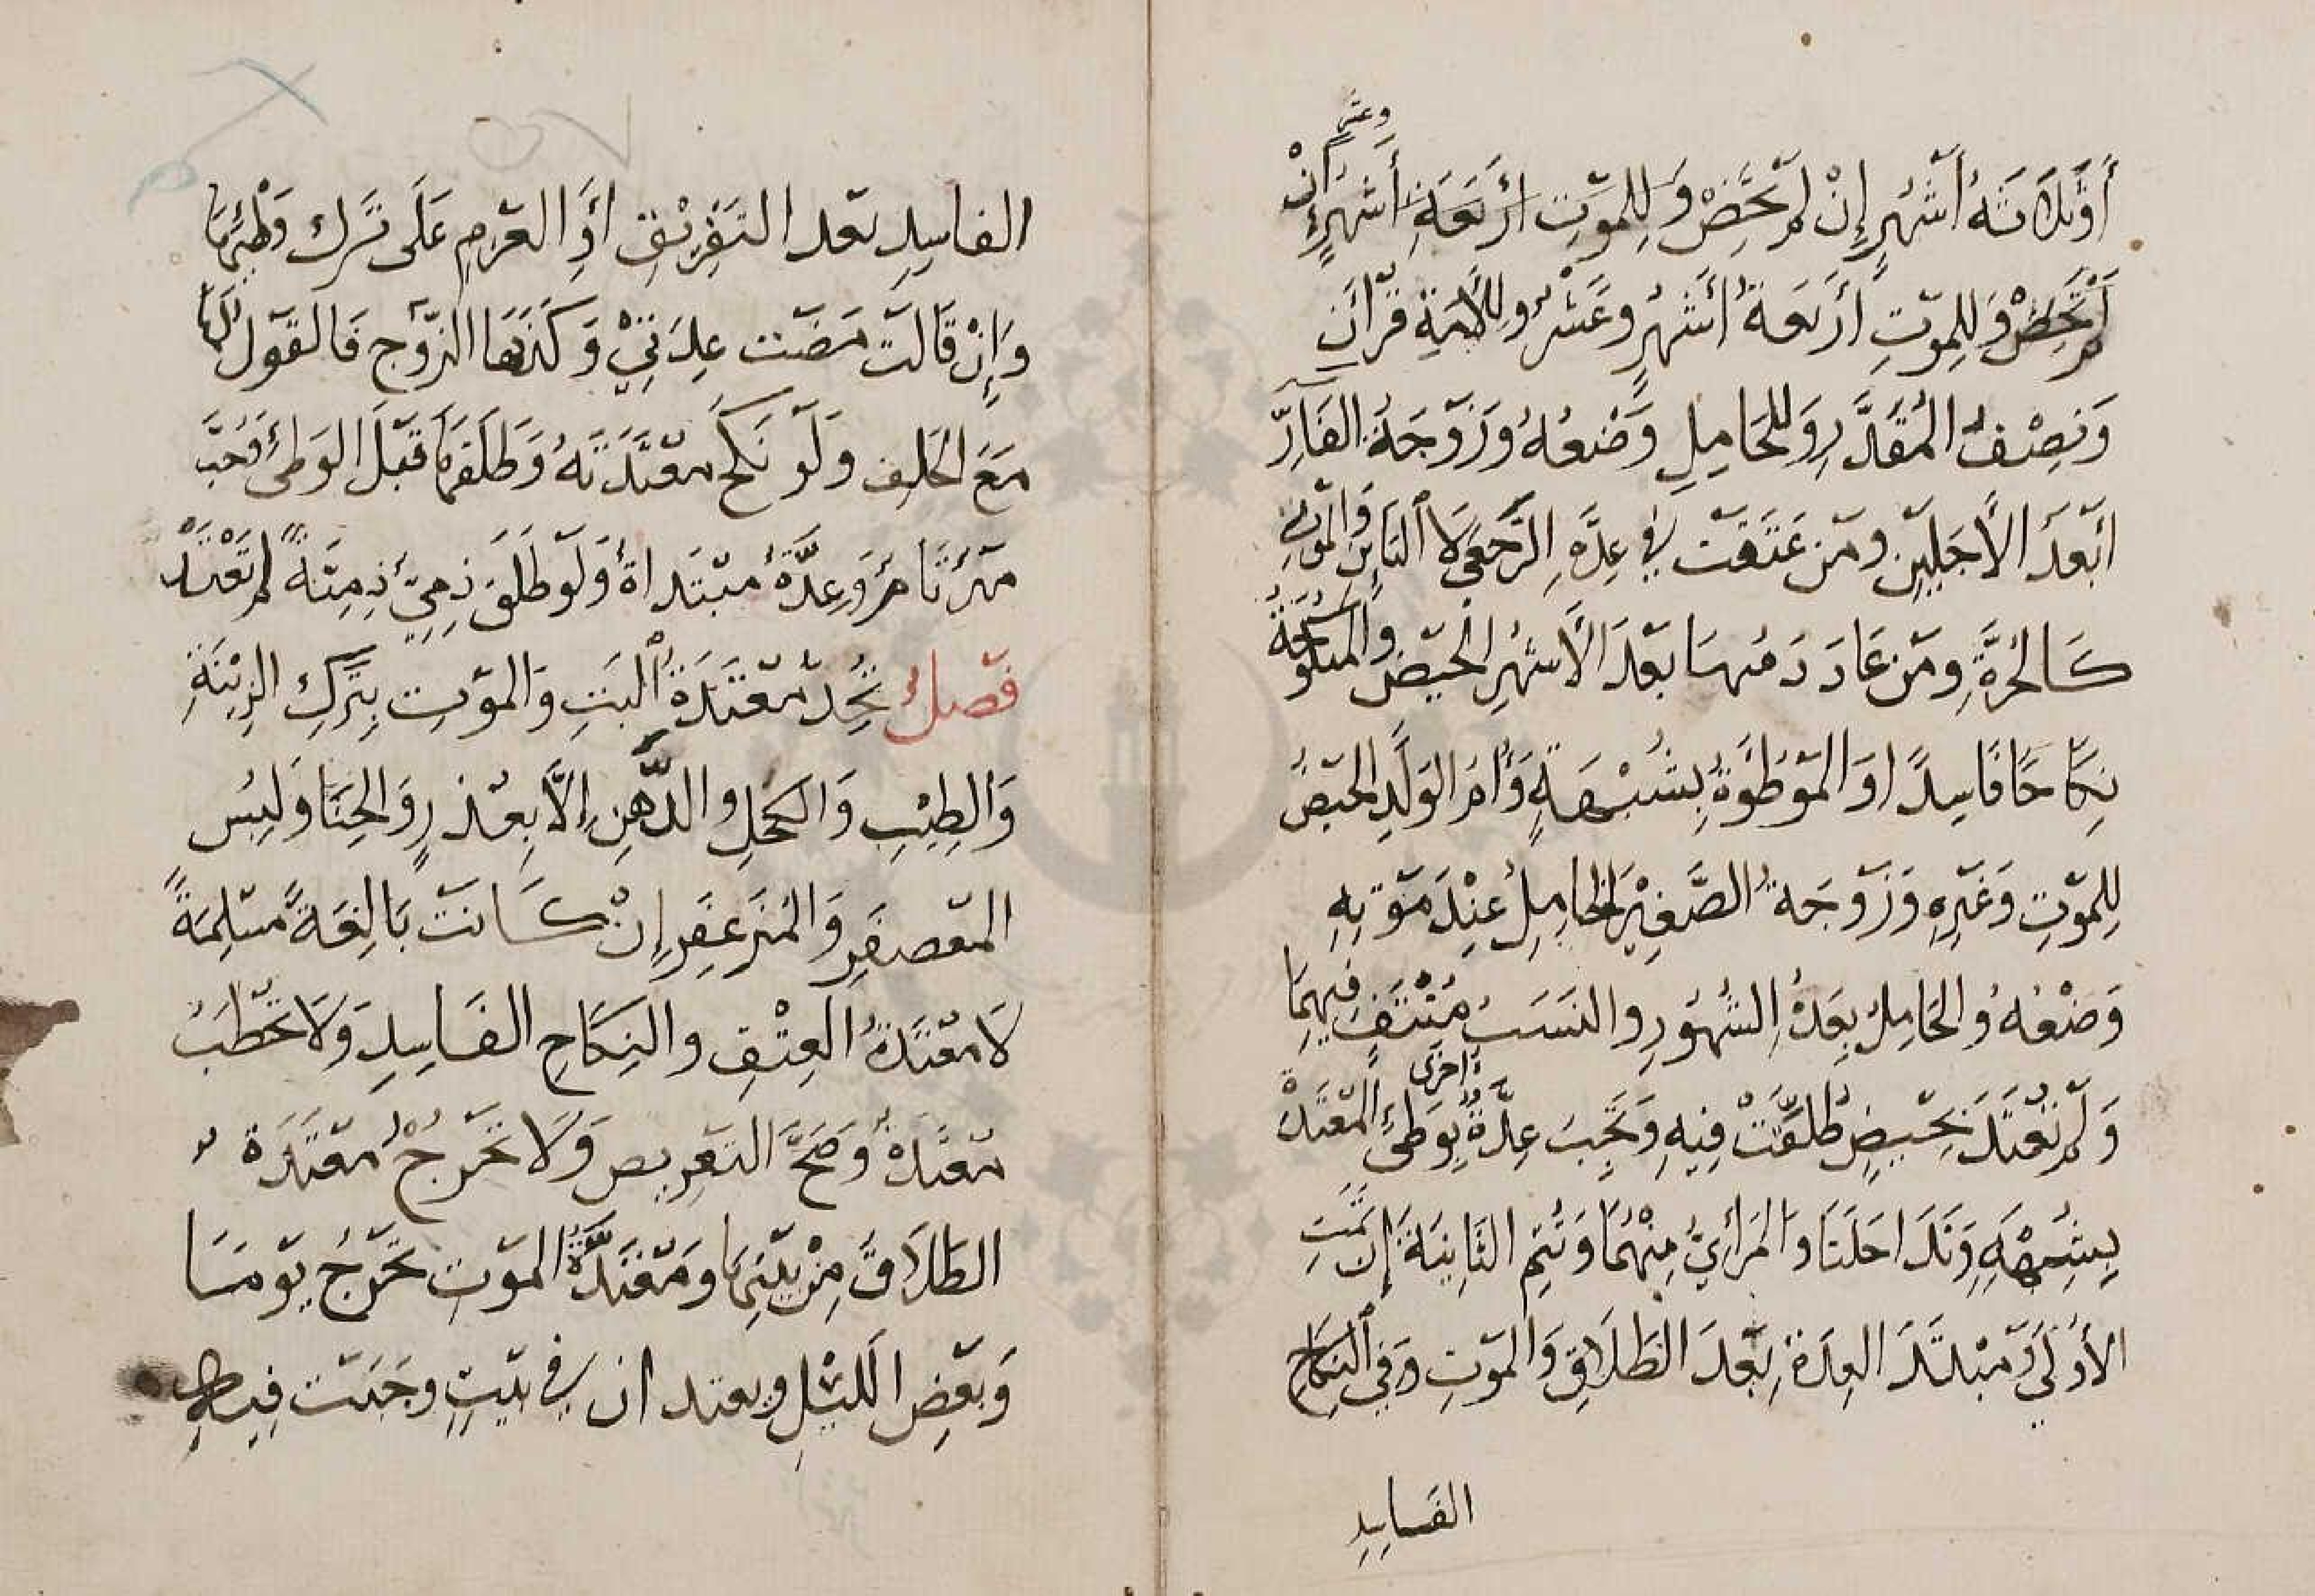 وعشر
أَوْ ثَلَاثَةُ أَشْهُرٍ إِنْ لَمْ تَحِضْ وَلِلْمَوْتِ أَرْبَعَةِ أَشْهُرٍ إِنْ
لَمْ تَحِضْ وَلِلْمَوْتِ أَرْبَعَةُ أَشْهُرٍ وَعَشْرٌ وَلِلْأَمَةِ قَرْآنِ
وَنِصْفُ الْمُقَدَّرِ وَلِلْحَامِلِ وَضْعُهُ وَزَوْجَةُ الْفَارِّ
أَبْعَدَ الْأَجَلَيْنِ وَمَنْ عَتَقَتْ فِي عِدَّةِ الرَّجْعِي لَا الْبَائِنِ وَالْمَوْتِ
كَالْحُرَّةِ وَمَنْ عَادَ دَمُهَا بَعْدَ الْأَشْهُرِ الْحَيْضُ وَالْمَنْكُوحَةُ
نِكَاحًا فَاسِدًا اوَالْمَوْطُوءَةُ بِشُبْهَةٍ وَأُمُّ الْوَلَدِ الْحَيْضُ
لِلْمَوْتِ وَغَيْرِهِ وَزَوْجَةُ الصَّغِيْرِ الْحَامِلُ عِنْدَ مَوْتِهِ
وَضْعُهُ وَالْحَامِلُ بَعْدَهُ الشُّهُوْرِ وَالنَسَبُ مُنْتَفٍ فِيْهِمَا
وَلَمْ تَعْتَدَّ بِحَيْضٍ طُلِّقَتْ فِيْهِ وَتَجِبُ عِدَّةٌ اخرى بِوَطْيِ الْمُعْتَدَةِ
بِشُبْهَةٍ وَتَدَاخَلَتَا وَالْمَرْأِيُّ مِنْهُمَا وَتُتِمُ الثَّانِيَةَ إِنْ تَمَّتِ
الْأُوْلَى وَمَبْدَأُ الْعِدَةِ بَعْدَ الطَّلَاقِ وَالْمَوْتِ وَفِي النِكَاحِ
الْفَاسِدِ
الفَاسِدِ بَعْدَ التَفْرِيْقِ أَوِ الْعَزْمِ عَلَى تَرْكِ وَطْئِهَا
وَإِنْ قَالَتْ مَضَتْ عِدَتِيْ وَكَذَبَهَا الزَّوْجُ فَالْقَوْلُ لَهَا
مَعَ الْحَلِفِ وَلَوْ نَكَحَ مُعْتَدَتَهُ وَطَلَّقَهَا قَبْلَ الْوَطْئِ وَجَبَ
مَهْرٌ تَامٌّ وَعِدَّةٌ مُبْتَدَاةٌ وَلَوْ طَلَّقَ ذِمِيٌّ ذِمِيَّةً لَمْ تَعْتَدَّ
فَصْلٌ تُحِدُّ مُعْتَدَةُ الْبَتِ وَالْمَوْتِ بِتَرْكِ الزِيْنَةِ
وَالطِيْبِ وَالْكُحْلِ وَالدُّهْنِ إِلَّا بِعُذْرٍ وَالْحِنَّا وَلُبْسُ
الْمُعَصْفَرِ وَالْمُزَعْفَرِ إِنْ كَانَتْ بَالِغَةً مُسْلِمَةً
لَا مُعْتَدَةُ الْعِتْقِ وَالنِكَاحِ الْفَاسِدِ وَلَا تُخْطَبُ
مُعْتَدَةٌ وَصَحَّ التَعْرِيْضُ وَلَا تَخْرُجْ مُعْتَدَةُ
الطَلَاقَ مِنْ بَيْتِهَا وَمُعْتَدَّةُ الْمَوْتِ تَخْرُجُ يَوْمًا
وَبَعْضِ اللَّيْلِ ويعتدان فِي بَيْتٍ وَجَبَتْ فِيهِ